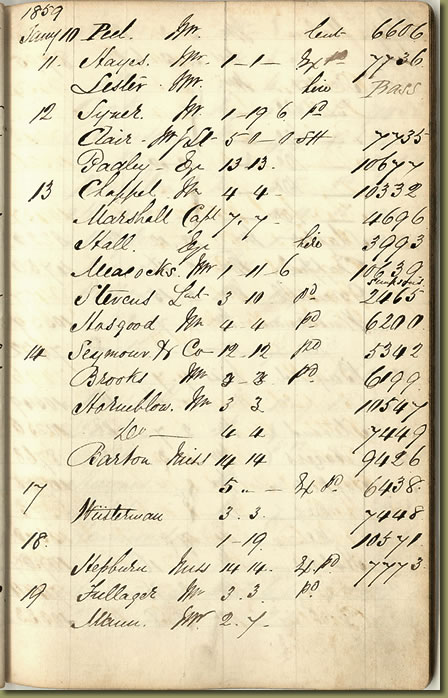 1859
Jany 10 Peel. Mr. lent 6606
11. Hayes. Mr. 1-1- Ex 7736
Lester. Mr. hire Bass
12 Syner. Mr 1-19 6 pd
Clair - 5 0-0 SH 7735
Esqe 13 13. 10677
13 Chappel. Mr 4 4 - 10332
Marshall Capt 7. 7 - 4696
Hall. Esqe hire 3993
Meacocks. Mr 1-11-6 10639
Simpsons
Stevens Lieut 3 10 pd 2465
Hosgood Mr 4-4 pd 6200
14 Seymour & Co - 12-12 pd 5342
Brooks Mr 3-3. pd. 6199
Horneblow. Mr 3 3 10547
Do — 4 4 7449
Barton Miss 14 14 9426
5 " - Ex pd 6438
17
Wüsterman 3.3. 7448
18. 1-19. 10571
Hepburn Miss 14 14. Ex. pd 7773
19 Fullager Mr 3.3. pd
Mann. Mr. 2.7-